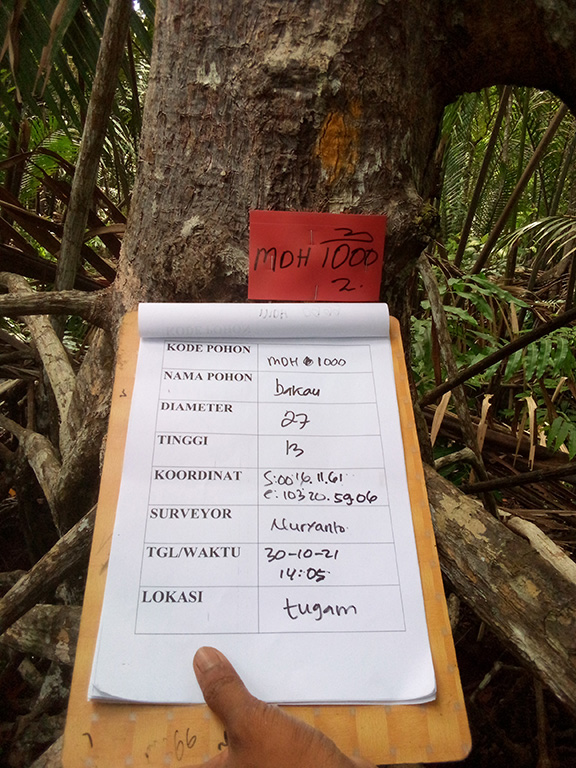 MDH 1000
2.
KODE POHON MDH 1000
NAMA POHON bakau
DIAMETER 27
TINGGI 13
KOORDINAT S:00 16.11.61
E:103 20.59.06
SURVEYOR Nuryanto
TGL/WAKTU 30-10-21
14:05
LOKASI tugam
66